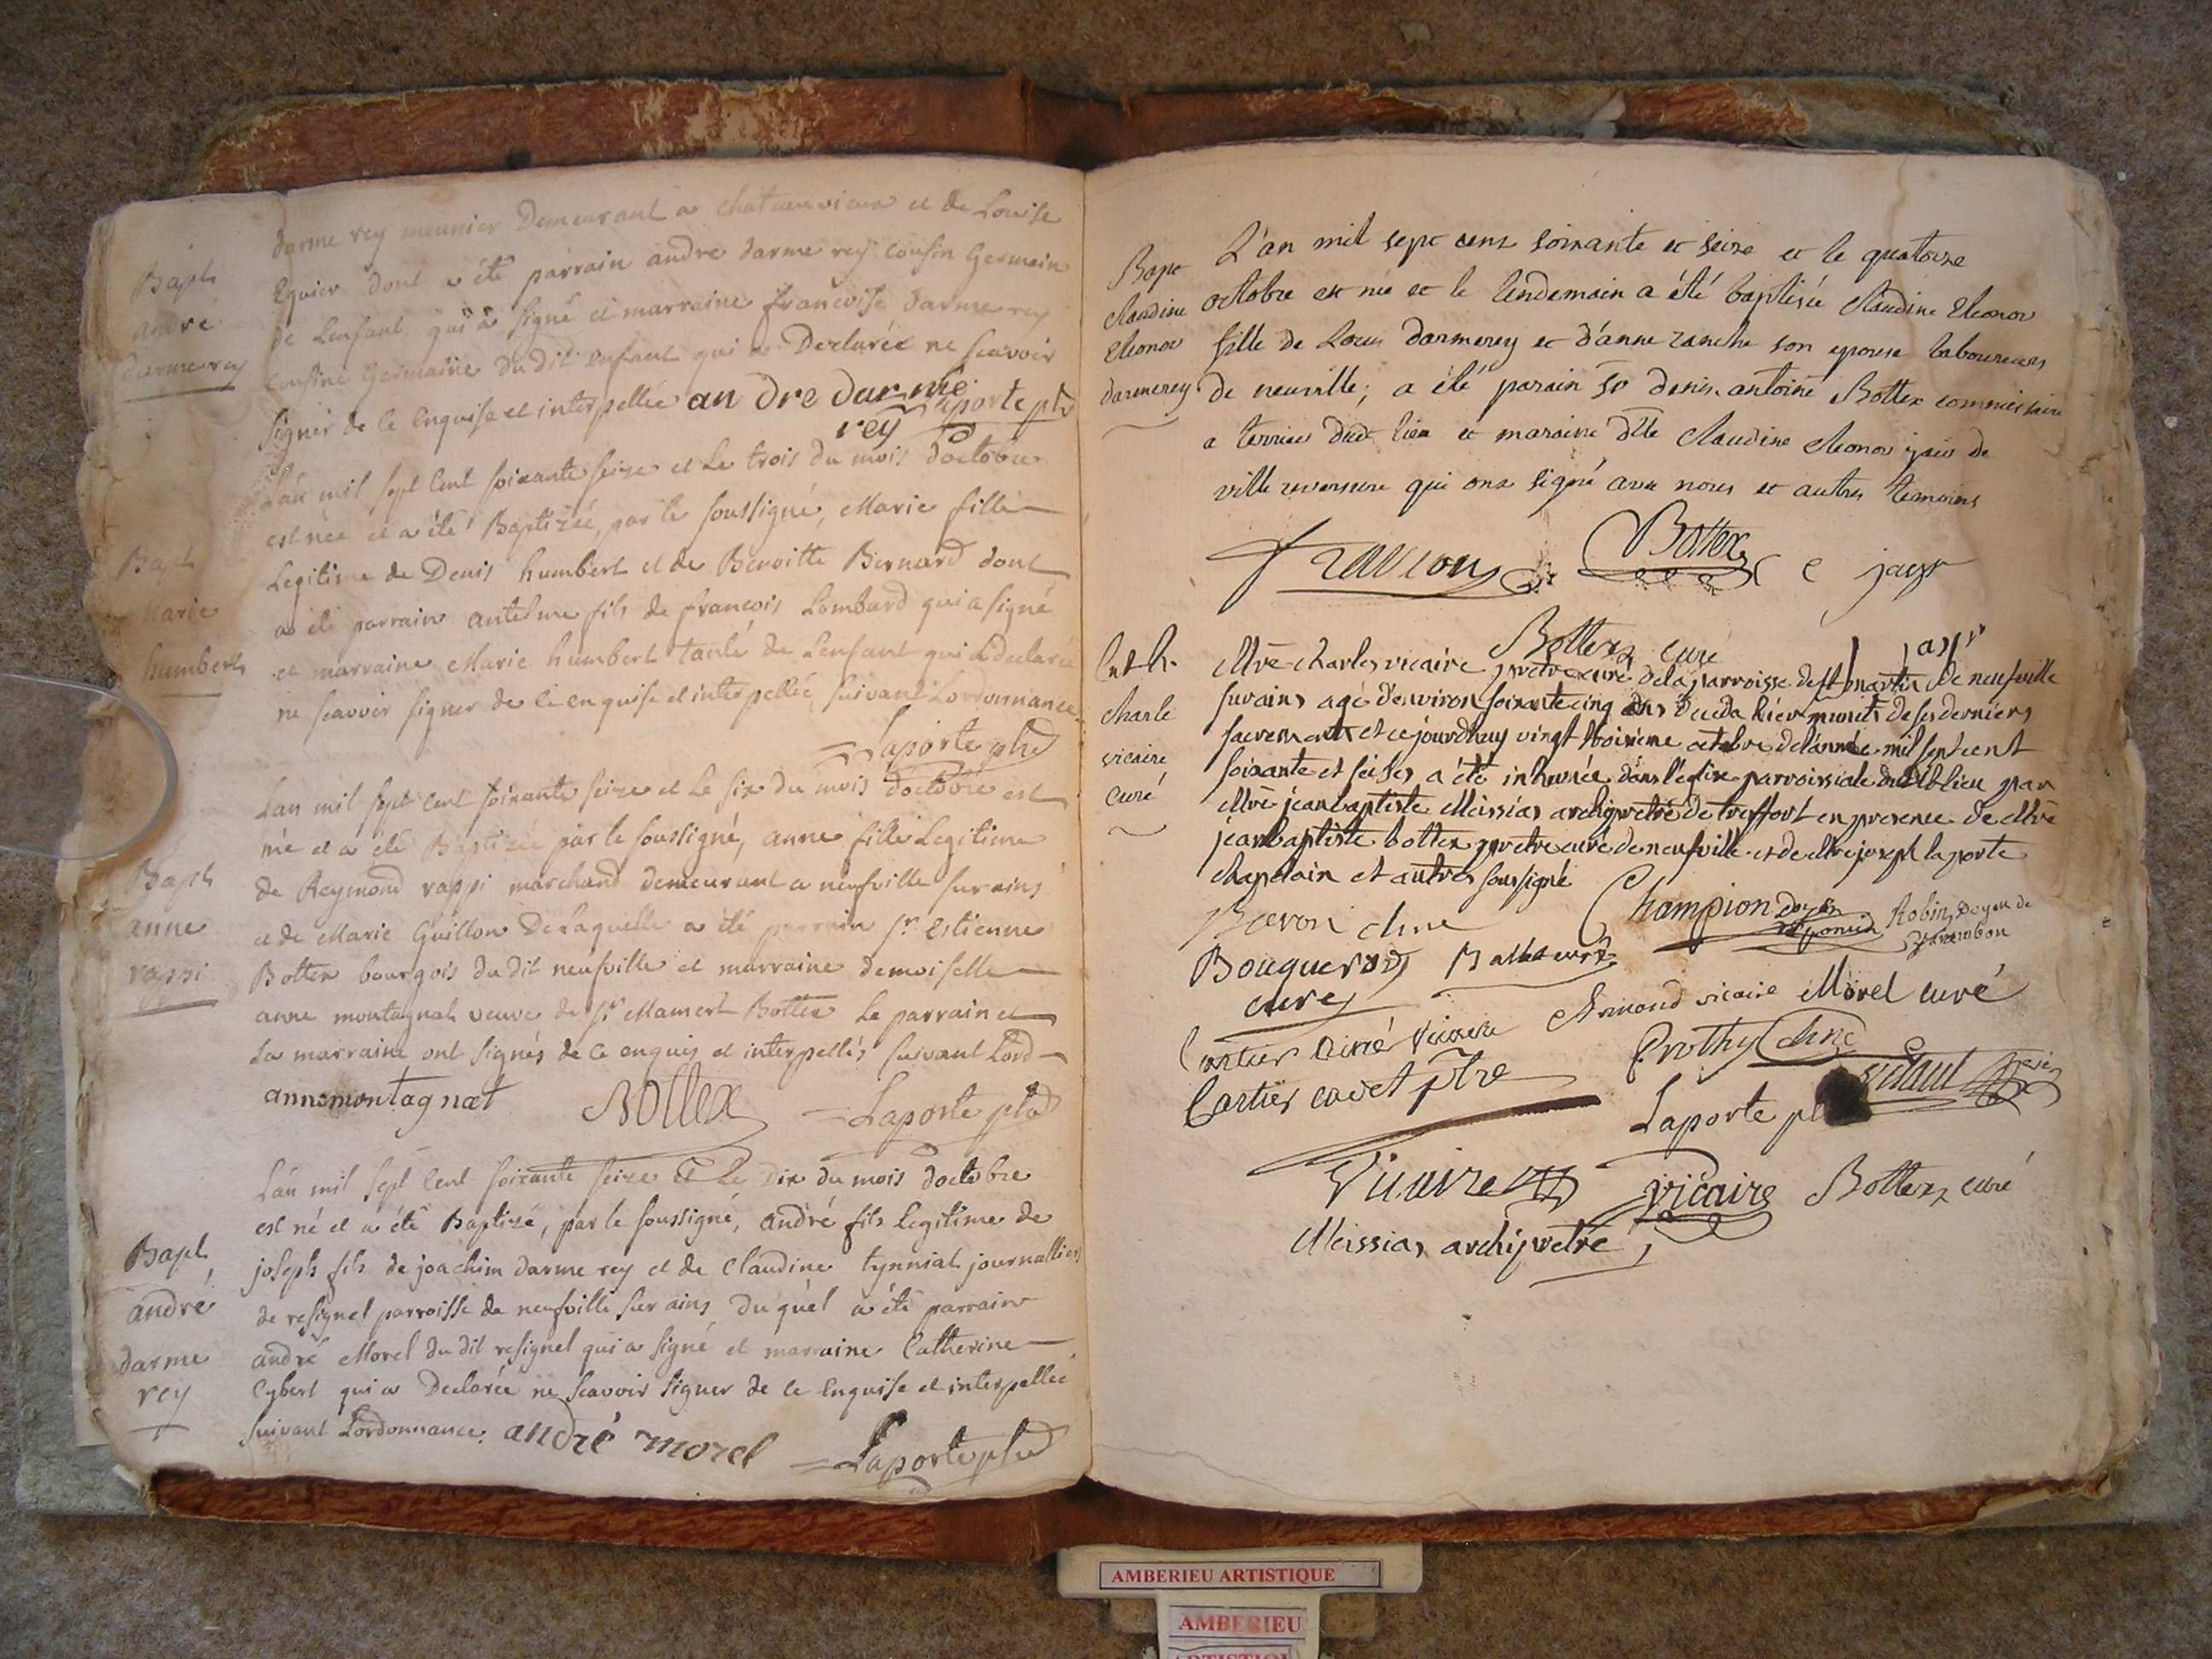 darme rey meunier Demeurant a chateauvieux et de Louise
Eguier dont a été parrain andre darme rey cousin Germain
de Lenfant qui a signé et marraine francoise darme rey
Cousine Germaine du dit enfant qui a Declarée ne scavoir
signer de ce enquise et interpellée an dre dar me
rey Laporte ptre
Bapt
andré
darme rey
Lan mil sept cent soixante seize et Le trois du mois doctobre
est née et a été Baptizée, par le soussigné, Marie fille
Legitime de Denis humbert et de Benoitte Bernard dont
a été parrain antelme fils de francois Lombard qui a signé
et marraine Marie humbert tante de Lenfant qui a declaré
ne scavoir signer de ce enquise et interpellée, suivant Lordonnance
Laporte ptre
Bapt
Marie
humbert
Lan mil sept cent soixante seize et Le six du mois doctobre est
né et a été Baptizée par le soussigné, anne fille Legitime
de Reymond rappi marchand demeurant a neufville sur ains
et de Marie Guillon De Laquelle a été parrain sr Estienne
Bottex bourgois du dit neufville et marraine demoiselle
anne montagnat veuve de sr Mamert Bottex Le parrain et
La marraine ont signés de ce enquis et interpellés suivant Lord
anne montag nat Bottex Laporte ptre
Bapt
anne
rappi
Lan mil sept cent soixante seize et Le dix du mois doctobre
est né et a été Baptizé, par le soussigné, andré fils Legitime de
joseph fils de joachim darme rey et de Claudine tynnial journallier
de resignel parroisse de neufville sur ains du quel a été parrain
andré Morel du dit resignel qui a signé et marraine Catherine
Cybert qui a Declarée ne scavoir signer de ce Enquise et interpellée
suivant Lordonnance. andré morel Laporte ptre
Bapt
andré
darme
rey
L'an mil sept cent soixante et seize et le quatorze
octobre est née et le lendemain a été baptisée Claudine Eleonor
fille de Louis darmerey et d'anne ranche son epouse laboureurs
de neuville; a été parain sr denis antoine Bottex commissaire
a terrier dud lieu et maraine dlle Claudine eleonor jair de
ville reversure qui ont signé avec nous et autres temoins
Bapt
Claudine
Eleonor
darmerey
Bottex c e jayr
Bottex curé
Mre charles vicaire pretre curé dela parroisse de st martin de neufville
surains agé d'environ soixante cinq ans deceda hier munit de ses derniers
sacrements et ce jourdhuy vingt troisieme octobre de l'année mil sept cent
soixante et seises a été inhumée dans l'eglise parroissiale dudit lieu par
Mre jean baptiste Meissias archipretre de treffort en presence de Mre
jean baptiste bottex pretre curé de neufville et de Mre joseph laporte
chapelain et autres soussigné
charle
vicaire
curé
Champion doyen
Robin, Doyen de
Bouquerod
curé
Cartier ainé vicaire Armand vicaire Morel curé
Cartier cadet ptre
Laporte
Vicaire vicaire Bottex curé
Meissias archipretre
AMBERIEU ARTISTIQUE
AMBERIEU
ARTISTIQUE